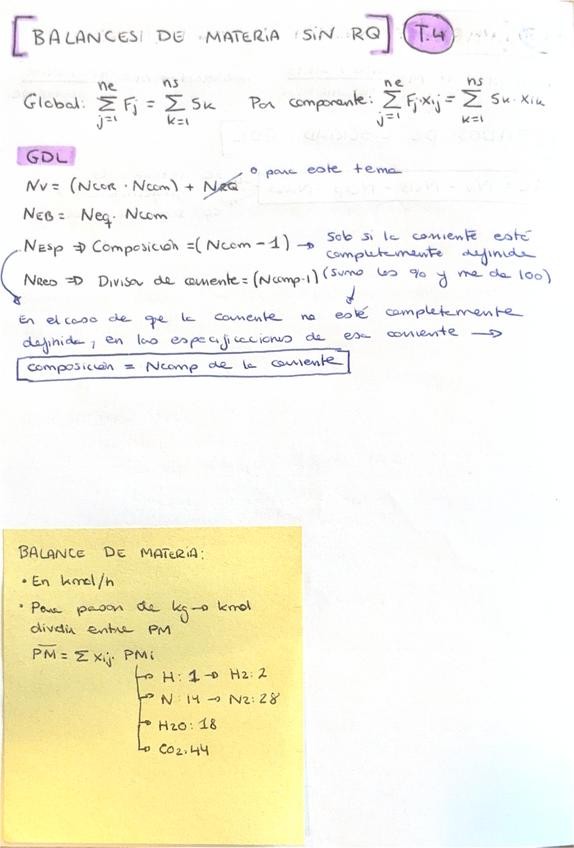 [BALANCES DE MATERIA SIN RQ] T.4
Global: ne Σ j=1 Fj = ns Σ k=1 Sk Por componente: ne Σ j=1 Fj·xij = ns Σ k=1 Sk·xik
GDL
NV = (NCOR · NCOM) + NRQ 0 para este tema
NEB = Neq · NCOM
NEsp ⇒ Composición = (NCOM - 1) → Solo si la corriente esté
completamente definida
NREG ⇒ Divisor de corriente = (Ncomp-1) (sumo los % y me da 100)
En el caso de que la corriente no esté completamente
definida, en las especificaciones de esa corriente →
composición = Ncomp de la corriente
BALANCE DE MATERIA:
• En kmol/h
• Para pasar de kg → kmol
dividir entre PM
PM = Σ xij · PMi
H: 1 → H2: 2
N: 14 → N2: 28
H2O: 18
CO2: 44